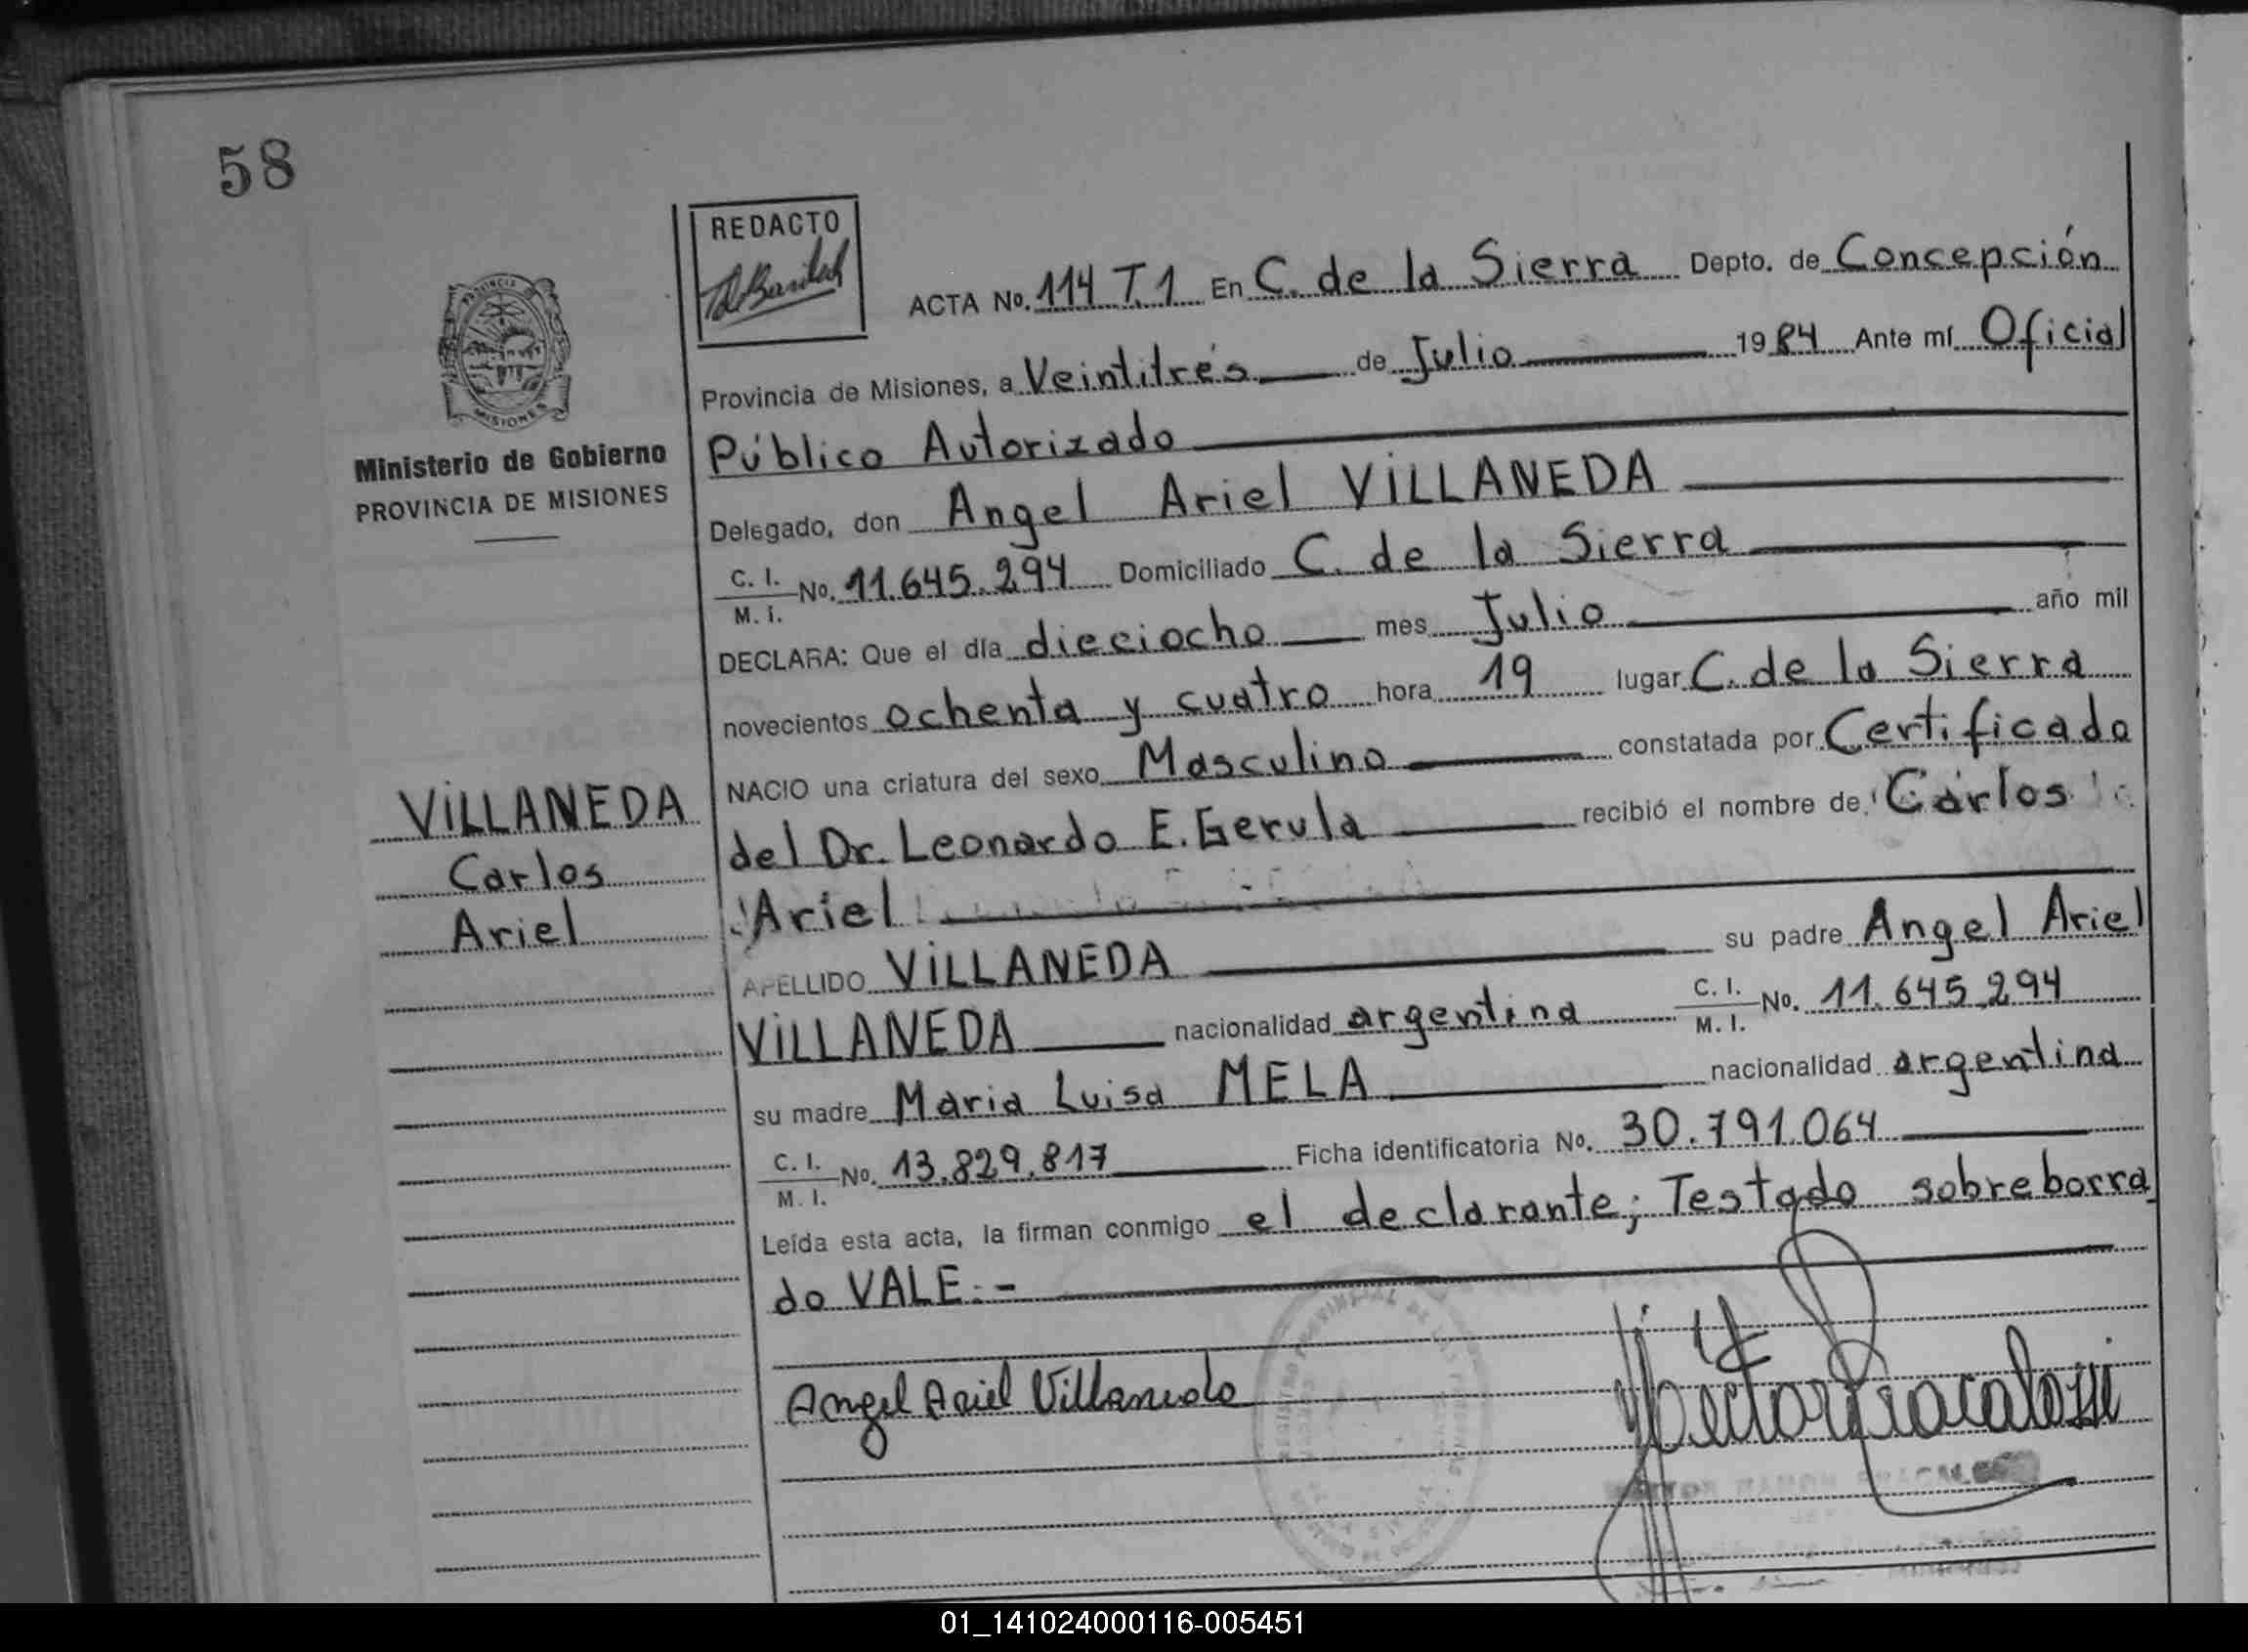 58
REDACTO
ACTA No. 114 T.1 En C. de la Sierra Depto. de Concepción
Provincia de Misiones, a Veintitrés de Julio 1984 Ante mí Oficial
Público Autorizado
PROVINCIA DE
MISIONES
Ministerio de Gobierno
PROVINCIA DE MISIONES
Delegado, don Angel Ariel VILLANEDA
C. I. M. I. No. 11.645.294 Domiciliado C. de la Sierra
DECLARA: Que el día dieciocho mes Julio año mil
novecientos ochenta y cuatro hora 19 lugar C. de la Sierra
NACIO una criatura del sexo Masculino constatada por Certificado
del Dr. Leonardo E. Gerula recibió el nombre de Carlos
Ariel
VILLANEDA
Carlos
Ariel
APELLIDO VILLANEDA su padre Angel Ariel
VILLANEDA nacionalidad argentina C. I. M. I. No. 11.645.294
su madre Maria Luisa MELA nacionalidad argentina
C. I. M. I. No. 13.829.817 Ficha identificatoria No. 30.791.064
Leída esta acta, la firman conmigo el declarante; Testado sobreborra
do VALE.-
Angel Ariel Villaneda
01_141024000116-005451